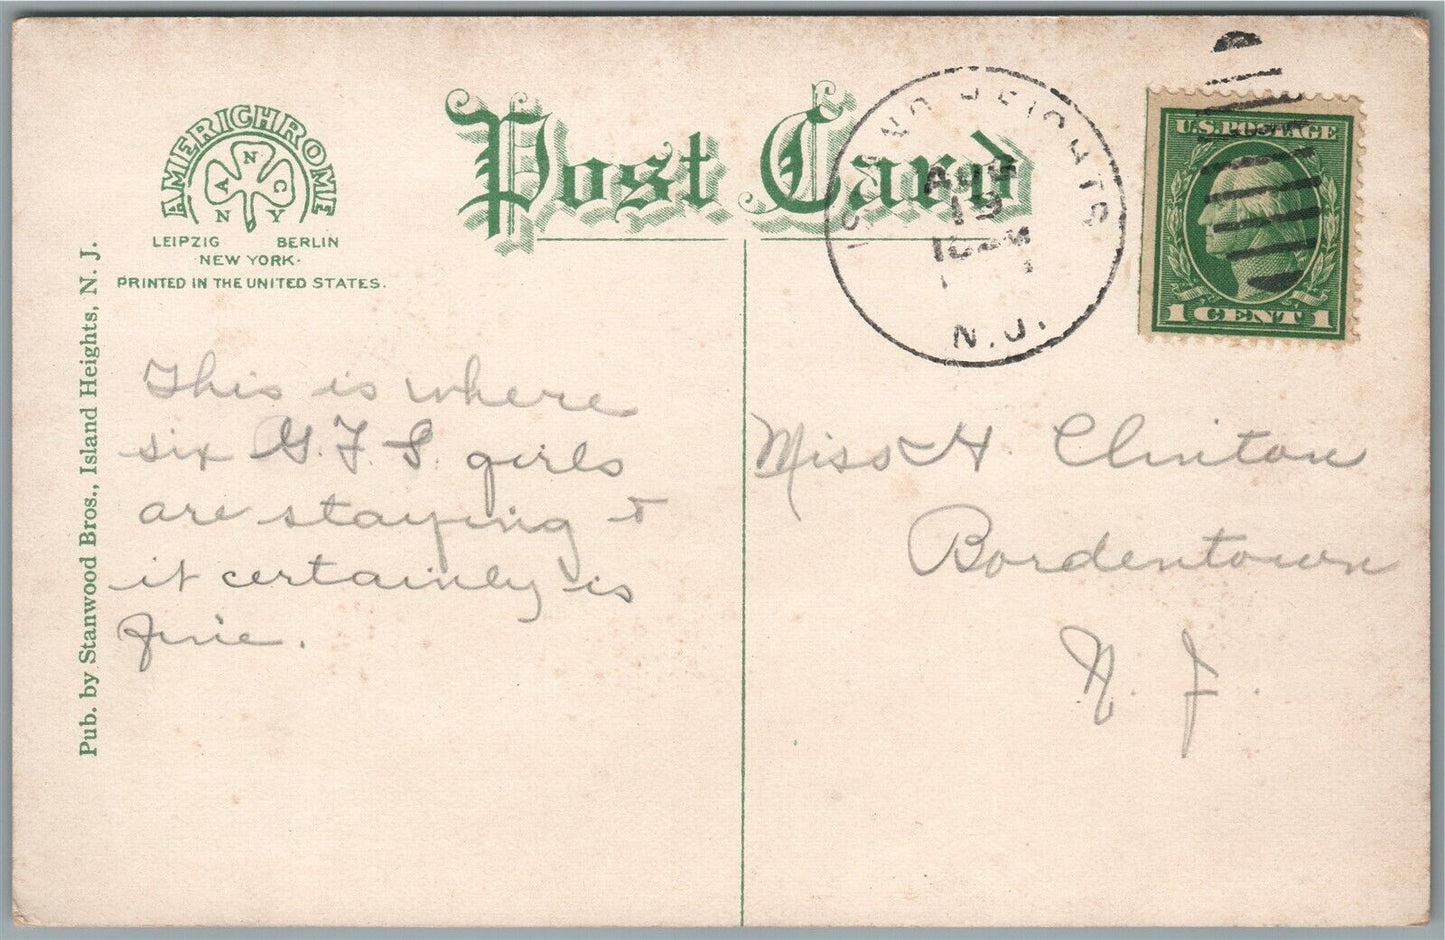 AMERICHROME
A N C
N Y
LEIPZIG BERLIN
NEW YORK.
PRINTED IN THE UNITED STATES.
Post Card
ISLAND HEIGHTS
AUG
19
N.J.
U.S. POSTAGE
1 CENT 1
Pub. by Stanwood Bros., Island Heights, N. J.
This is where
six G.F.S. girls
are staying &
it certainly is
fine.
Miss H. Clinton
Bordentown
N. J.